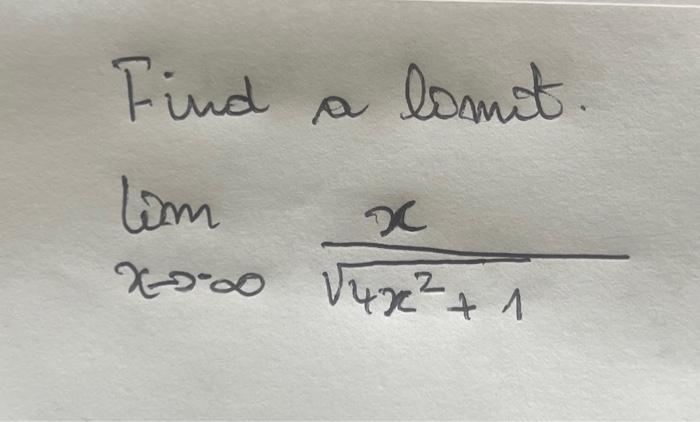 Find a limit.
lim x→-∞ x/√(4x²+1)